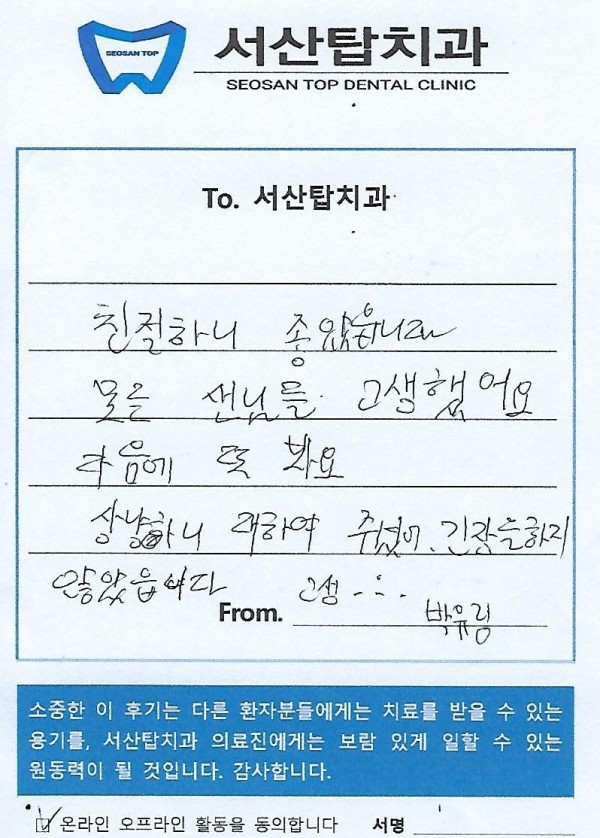 SEOSAN TOP
서산탑치과
SEOSAN TOP DENTAL CLINIC
To. 서산탑치과
친절하니 좋았습니다
모든 샌님들 고생했어요
다음에 또 봐요
상냥하니 대하여 주셨어. 긴장을하지
않았읍니다 고생 . . .
From. 박유림
소중한 이 후기는 다른 환자분들에게는 치료를 받을 수 있는
용기를, 서산탑치과 의료진에게는 보람 있게 일할 수 있는
원동력이 될 것입니다. 감사합니다.
온라인 오프라인 활동을 동의합니다 서명